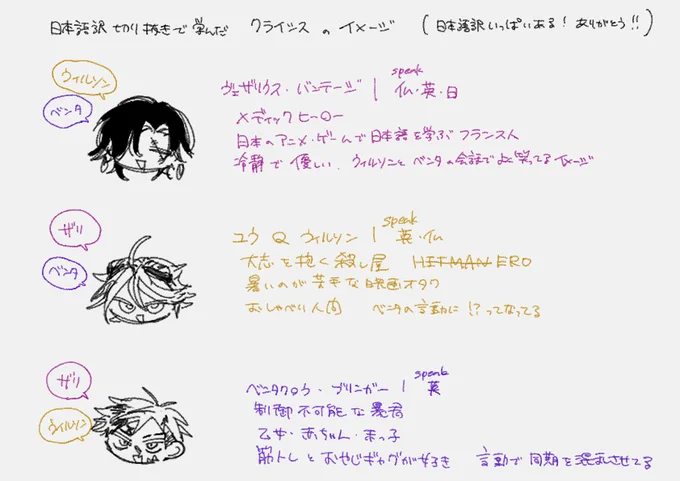 日本語訳 切り抜きで学んだ クライシス の イメージ (日本語訳いっぱいある! ありがとう!!)
ウィルソン
ベンタ
ヴェザリウス・バンテージ | speak 仏・英・日
メディックヒーロー
日本のアニメ・ゲームで日本語を学ぶフランス人
冷静で優しい. ウィルソンとベンタの会話でよく笑ってるイメージ
ザリ
ベンタ
ユウ Q ウィルソン | speak 英・仏
大志を抱く殺し屋 HITMAN ERO
暑いのが苦手な映画オタク
おしゃべり人間 ベンタの言動に!?ってなってる
ザリ
ウィルソン
ベンタクロウ・ブリンガー | speak 英
制御不可能な暴君
乙女・赤ちゃん・末っ子
筋トレとおやじギャグが好き 言動で同期を混乱させてる